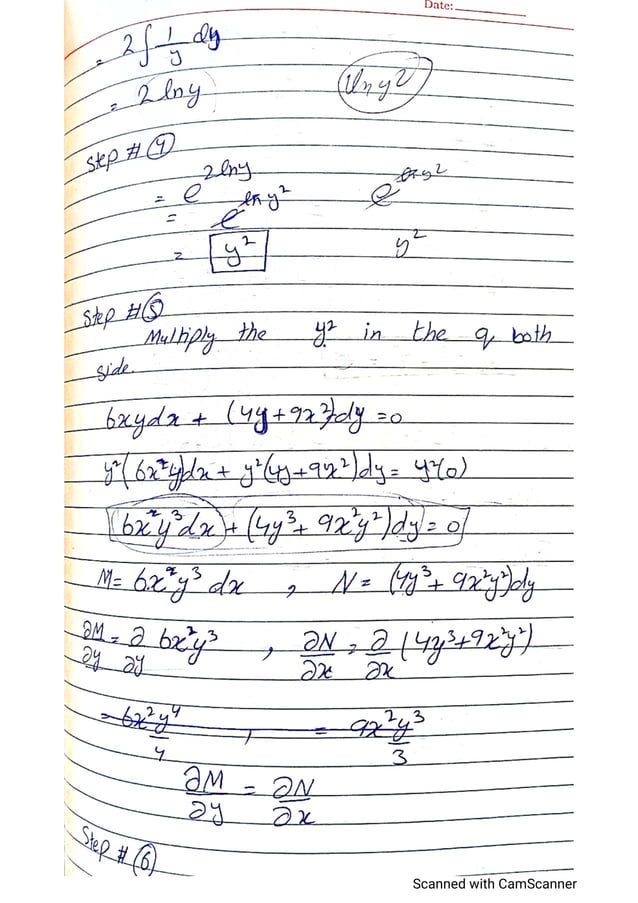 Date:
= 2∫ 1/y dy
= 2 lny lny²
Step # 4
= e^2lny e^lny²
= e^lny²
= y² y²
Step # 5
Multiply the y² in the q both
side
6xydx + (4y+9x²)dy=0
y²(6x²y)dx + y²(4y+9x²)dy= y²(0)
6x²y³dx+(4y³+9x²y²)dy=0
M= 6x²y³ dx , N= (4y³+9x²y²)dy
∂M/∂y = ∂/∂y 6x²y³ , ∂N/∂x = ∂/∂x (4y³+9x²y²)
= 6x²y⁴/4 , = 9x²y³/3
∂M/∂y = ∂N/∂x
Step # 6
Scanned with CamScanner